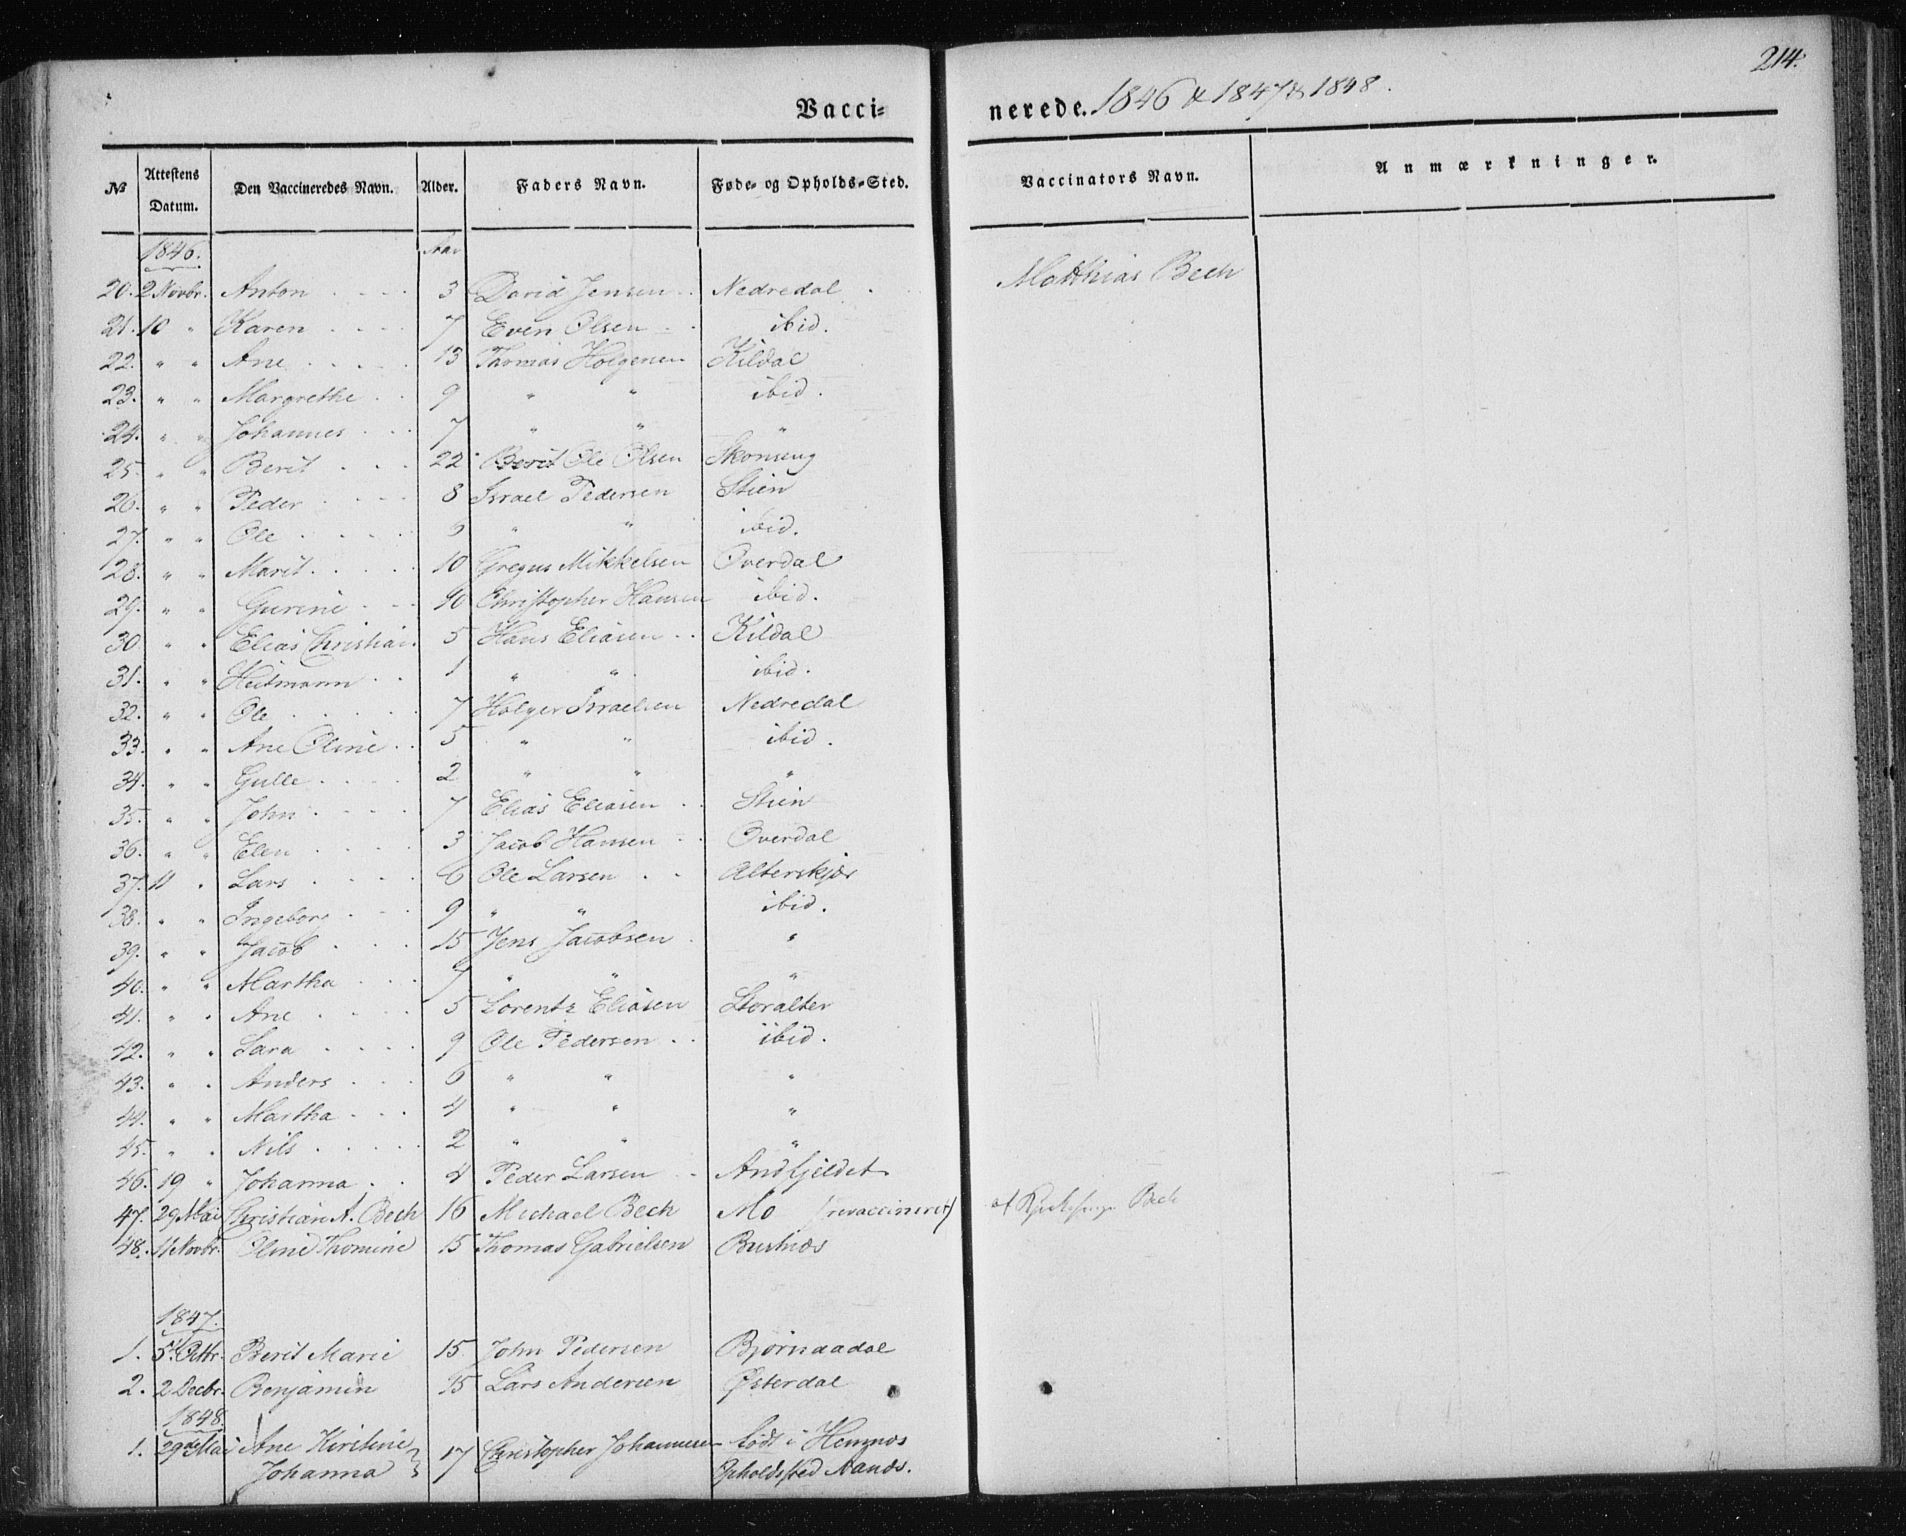 214.
Vacci-
nerede. 1846 & 1847 & 1848.
No Attestens Datum. Den Vaccineredes Navn. Alder. Faders Navn. Føde- og Opholds-Sted. Vaccinators Navn. Anmærkninger.
1846. Aar
20. 2 Novbr. Anton 3 David Jensen Nedredal Matthias Bech
21. 10 " Karen 7 Even Olsen ibid.
22. " " Ane 13 Thomas Holgersen Kildal
23. " " Margrethe 9 " " ibid.
24. " " Johannes 7 " " "
25. " " Berit 22 Berit Ole Olsen Skonseng
26. " " Peder 8 Israel Pedersen Stien
27. " " Ole " " ibid.
28. " " Marit 10 Gregus Mikkelsen Overdal
29. " " Gurine 10 Christopher Hansen ibid.
30 " " Elias Christian 5 Hans Eliasen Kildal
31. " " Heitmann 1 " " ibid.
32. " " Ole 7 Holger Israelsen Nedredal
33. " " Ane Oline 5 " " ibid.
34. " " Gulle 2 " " "
35. " " John 7 Elias Eliasen Stien
36. " " Elen 3 Jacob Hansen Overdal
37. 11 " Lars 6 Ole Larsen Alterskjær
38. " " Ingeborg 9 " " ibid.
39. " " Jacob 15 Jens Jacobsen "
40. " " Martha 7 " " "
41. " " Ane 5 Lorentz Eliasen Storalter
42. " " Sara 9 Ole Pedersen ibid.
43. " " Anders 6 " " "
44. " " Martha 4 " " "
45. " " Nils 2 " " "
46. 19 " Johanna 4 Peder Larsen Andfjeldet
47. 29 Mai Christian A. Bech 16 Michael Bech Mo (revaccineret) af Bech
48. 11 Novbr. Oline Thomine 15 Thomas Gabrielsen Bustnæs
1847.
1. 5 Octbr. Berit Marie 15 John Pedersen Bjørnaadal
2. 2 Decbr. Benjamin 15 Lars Andersen Østerdal
1848.
1. 29de Mai Ane Kirstine 17 Christopher Johannesen født i Hemnæs
Johanna Opholdssted Aanæs.